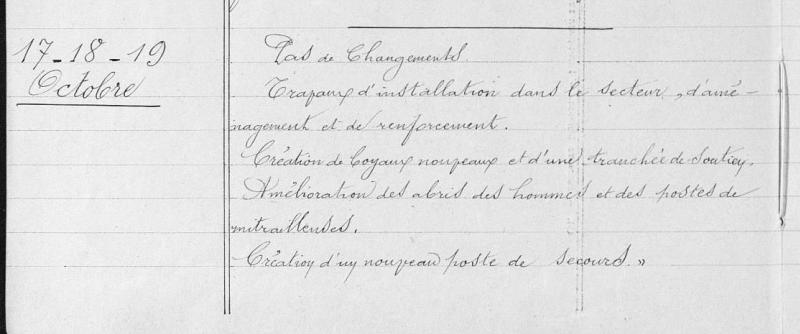 17 - 18 - 19
Octobre
Pas de Changements.
Travaux d'installation dans le secteur, d'amé-
nagement et de renforcement.
Création de boyaux nouveaux et d'une tranchée de soutien.
Amélioration des abris des hommes et des postes de
mitrailleuses.
Création d'un nouveau poste de secours. »